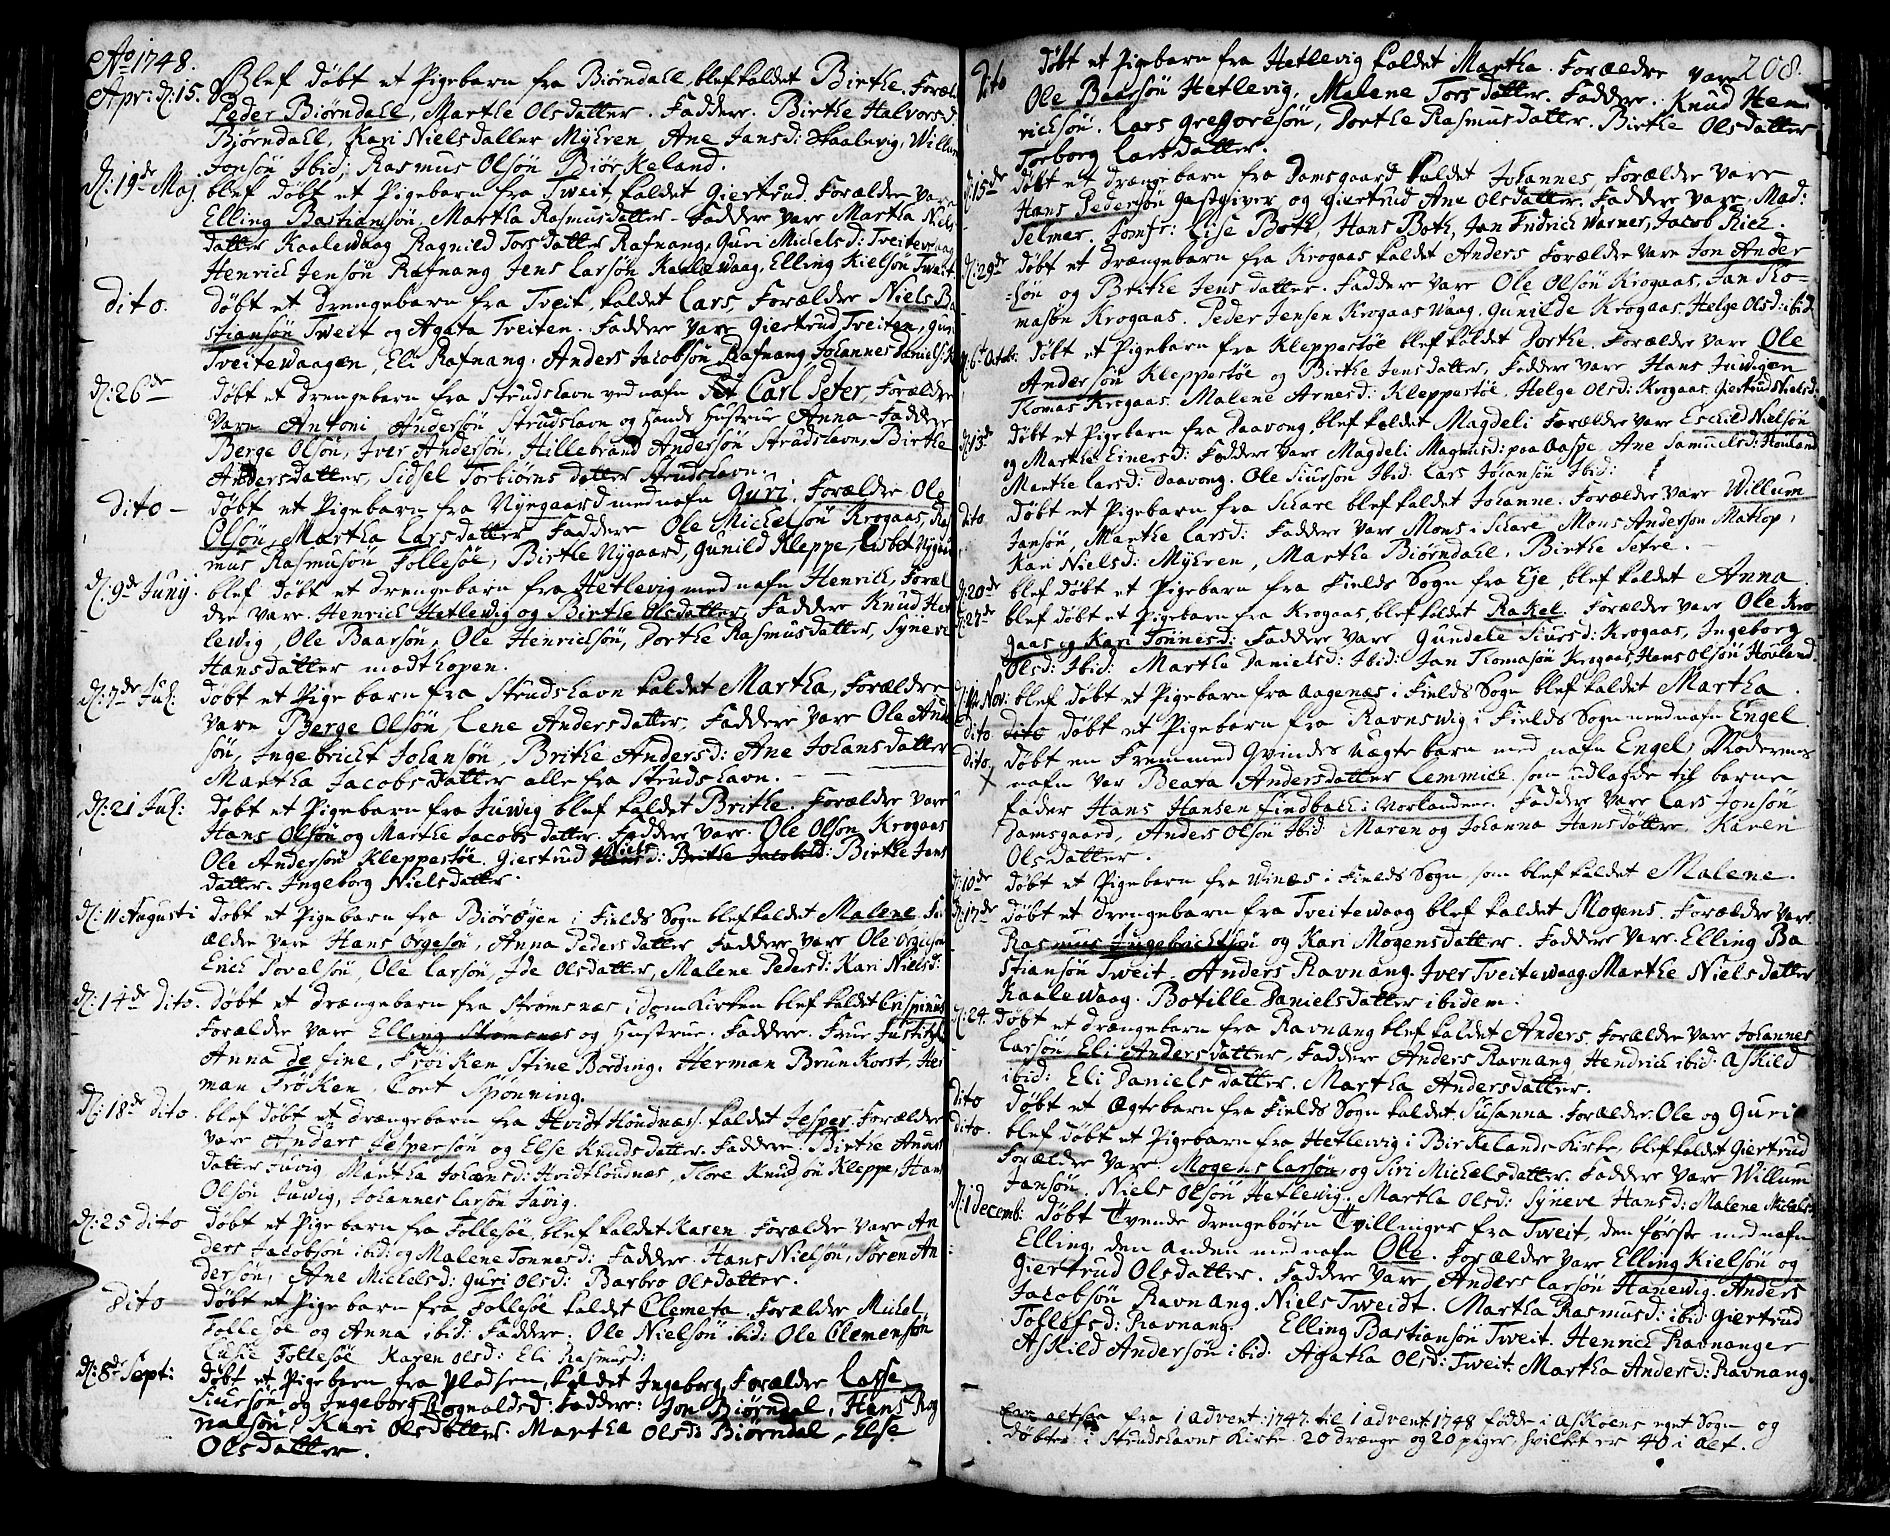 Ao 1748.
Apr: d: 15. Blef døbt et Pigebarn fra Biørndall, blef kaldet Birthe. Foræl:
Peder Biørndall, Marthe Olsdatter. Faddere. Birthe Halvorsd
Biørndall, Kari Nielsdatter Myhren, Ane Jansd: Haalevig, Willum
Jonsøn Ibid, Rasmus Olsøn Biørkeland.
d: 19de Maj. blef døbt et Pigebarn fra Tweit, kaldet Giertrud. Forældre vare
Elling Bastiansøn, Martha Rasmusdatter. Faddere vare Martha Niels
datter Kaalewaag Ragnild Torsdatter Rafnang, Guri Michelsd: Tveitevaag
Henrich Jensøn Rafnang Jens Larsøn Kaalewaag, Elling Kielsøn Tweit
dito. døbt et drengebarn fra Tveit, kaldet Lars, Forældre Niels Ba
stiansøn Tweit og Agata Tveiten. Faddere vare Giertrud Tveiten, Guri
Tveitewaagen, Eli Rafnang. Anders Jacobsøn Rafnang Johannes Daniels:
d: 26de døbt et drengebarn fra Strudshavn ved nafn Carl Peter, Forældre
vare Antoni Andersøn Strudshavn og hands hustrue Anna. Faddere
Berge Olsøn, Iver Andersøn, Hillebrand Andersøn Strudshavn, Birthe
Andersdatter, Sidsel Torbiørnsdatter Strudshavn.
dito - døbt et Pigebarn fra Nyegaard med nafn Guri. Forældre Ole
Olsøn, Martha Larsdatter Faddere Ole Michelsøn Krogaas, Ras
mus Rasmusøn Follesøe, Birthe Nygaard, Gunild Kleppe, Lisbet Nygaard
d: 9de Junij. blef døbt et drengebarn fra Hetlevig med nafn Henrich, Foræl
dre vare. Henrich Hetlevig og Birthe Olsdatter, Faddere Knud Het
levig, Ole Baarsøn, Ole Henrichsøn, Dorthe Rasmusdatter, Syneve
Hansdatter modthopen.
d: 7de Jul: døbt et Pige barn fra Strudshavn kaldet Martha, Forældre
vare Berge Olsøn, Lene Andersdatter, Faddere vare Ole And
søn, Ingebricht Johansøn, Brithe Andersd: Ane Johansdatter
Martha Jacobsdatter alle fra Strudshavn.
d: 21 Jul: døbt et Pigebarn fra Juwig blef kaldet Brithe. Forældre vare
Hans Olsøn og Marthe Jacobsdatter. Faddere vare. Ole Olsøn Krogaas
Ole Andersøn Kleppestøe. Giertrud Nielsd: Brithe Jacobsd: Birthe Jens
datter. Ingeborg Nielsdatter.
d: 11 Augusti døbt et Pigebarn fra Biørøyen i Fields Sogn blef kaldet Malene For
ældre vare Hans Ørgesøn, Anna Pedersdatter Faddere vare Ole Ørgesøn
Erich Povelsøn, Ole Larsøn, Ide Olsdatter, Malene Pedersd: Kari Nielsd:
d: 14de dito. døbt et drængebarn fra Strømsnæs i domKirken blef kaldet Crispinus
Forældre vare Elling Strømsnes og Hustrue. Faddere. Frue Justitz
Anna de fine, Frøiken Stine Bording. Herman Brunkorst, Her
man Frøken, Cort Spønning.
d: 18de dito. blef døbt et drængebarn fra Hvidt Hondnæs kaldet Jesper. Forældre
vare Anders Jespersøn og Else Knudsdatter. Faddere. Birthe Anders
datter Juvig Martha Johansd: Hvidthondnæs, Tore Knudsøn Kleppe, Hans
Olsøn Juwig, Johannes Larsøn Juvig.
d: 25 dito døbt et Pige barn fra Follesøe, blef kaldet Karen. Forældre vare An
ders Jacobsøn ibid: og Malene Tønnesd: Faddere. Hans Nielsøn, Søren An
dersøn, Ane Michelsd: Guri Olsd: Barbro Olsdatter.
Dito døbt et Pige barn fra Follesøe kaldet Clemeta. Forældre Michel
Follesøe og Anna ibid: Faddere. Ole Nielsøn ibid: Ole Clemensøn
Follesøe Karen Olsd: Eli Rasmusd:
d: 8de Sept: døbt et Pigebarn fra Pladsen, kaldet Ingeborg, Forældre Lasse
Siursøn, og Ingeborg Rognaldsd: Faddere: Jon Biørndal, Hans Rog
nalsøn, Kari Olsdatter. Martha Olsd: Biørndal, Else
Olsdatter.
208.
Dito døbt et Pigebarn fra Hetlevig kaldet Martha. Forældre vare
Ole Baarsøn Hetlevig, Malene Torsdatter. Faddere. Knud Hen
richsøn. Lars Gregoresøn, Dorthe Rasmusdatter. Birthe Olsdatter
Torborg Larsdatter.
d: 15de døbt et drænge barn fra Damsgaard kaldet Johannes, Forældre vare
Hans Pedersøn Gastgiver og Giertrud Ane Olsdatter. Faddere vare. Mad:
Telmer. Jomfr: Lise Both, Hans Both, Jan Fridrich Warner, Jacob Rich.
d: 29de døbt et drængebarn fra Krogaas kaldet Anders Forældre vare Jon Ander
søn og Brithe Jensdatter. Faddere vare Ole Olsøn Krogaas, Jan Tho-
masøn Krogaas. Peder Jensen Krogaas Waag. Gunilde Krogaas. Helge Olsd: ibid.
d: 6te Octob: døbt et Pigebarn fra Kleppestøe blef kaldet Dorthe. Forældre vare Ole
Andersøn Kleppestøe og Birthe Jensdatter, Faddere vare Hans Juwigen
Thomas Krogaas. Malene Arnesd: Kleppestøe. Helge Olsd: Krogaas. Giertrud Nielsd:
d: 13de døbt et Pigebarn fra Daavong, blef kaldet Magdeli Forældre vare Eschild Nielsøn
og Marthe Einersd: Faddere vare Magdeli Magnusd: paa Aaspe, Ane Samuelsd: Houland
Marthe Larsd: Daavong. Ole Siursøn Ibid. Lars Johansøn Ibid:
dito døbt et Pigebarn fra Schare blef kaldet Johanne. Forældre vare Willum
Jansøn, Marthe Larsd: Faddere vare Mons i Schare Mons Andersøn Mathop,
Kari Nielsd: Myhren, Martha Biørndahl, Birthe Setre.
d: 20de blef døbt et Pigebarn fra Fields Sogn fra Eje, blef kaldet Anna.
d: 27de blef døbt et Pigebarn fra Krogaas, blef kaldet Rakel. Forældre vare Ole Kro
gaas og Kari Tønnesd: Faddere vare Gundele Siursd: Krogaas, Ingeborg
Olsd: Ibid: Marthe Danielsd: Ibid: Jan Thomasøn Krogaas, Hans Olsøn Houland.
d: Nov: blef døbt et Pigebarn fra Aagenæs i Fields Sogn blef kaldet Martha.
dito dito døbt et Pigebarn fra Ravnswig i Fields Sogn med nafn Engel
dito, døbt en Fremmed Qvindes uægte barn med nafn Engel, Moderens
X nafn var Beata Andersdatter Lemmich som udlagde til barne
fader Hans Hansen Findbach i Norlandene. Faddere vare Lars Jonsøn
Damsgaard, Anders Olsøn Ibid Maren og Johanna Hansdøtter, Karen
Olsdatter.
d: 10de døbt et Pigebarn fra Winæs i Fields Sogn som blef kaldet Malene.
d: 17de døbt et drengebarn fra Tveitewaag blef kaldet Mogens. Forældre vare
Rasmus Ingebrichtsøn og Kari Mogensdatter. Faddere vare. Elling Ba
stiansøn Tweit. Anders Ravnang. Iver Tveitewaag. Marthe Nielsdatter
Kaalewaag. Botille Danielsdatter ibidem.
d: 24. døbt et drængebarn fra Ravnang blef kaldet Anders Forældre vare Johannes
Larsøn Eli Andersdatter, Faddere Anders Ravnang Hendrich ibid. Askild
ibid: Eli Danielsdatter. Martha Andersdatter.
Dito døbt et Ægtebarn fra Fields Sogn kaldet Susanna. Forældre. Ole og Guri
dito. blef døbt et Pigebarn fra Hetlewig i Birkelands Kirke, blef kaldet Giertrud
Forældre vare. Mogens Larsøn, og Siri Michelsdatter. Faddere vare Willum
Jansøn. Niels Olsøn Hetlevig. Martha Olsd: Syneve Hansd: Malene Michelsd:
d: 1 Decemb: døbt tvende drengebørn tvillinger fra Tweit, den første med nafn
Elling, den anden med nafn Ole. Forældre vare Elling Kielsøn og
Giertrud Olsdatter. Faddere vare, Anders Larsøn Hanewig. Anders
Jacobsøn Ravnang. Niels Tweidt. Martha Rasmusd: ibid: Giertrud
Tollefsd: Ravnang. Elling Bastiansøn Tweit. Henrich Ravnanger
Askild Andersøn ibid: Agatha Olsd: Tweit. Martha Andersd: Ravnang.
Ere altsaa fra 1 advent: 1747. til 1 advent 1748 fødde i Askøens eget Sogn og
døbte i Strudshavns Kirke 20 drænge og 20 piger, hvilket er 40 i alt.